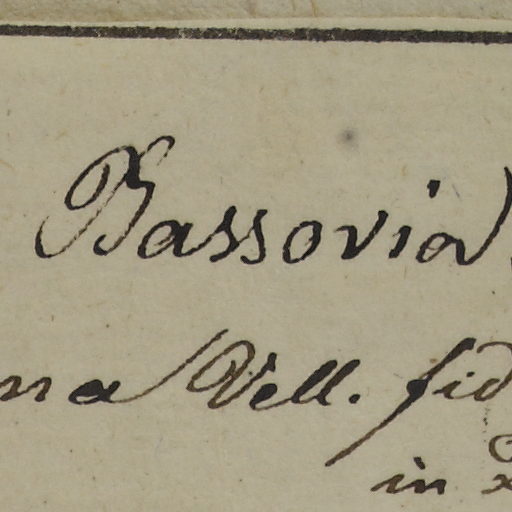 Bassovia
na Vell. fid
in